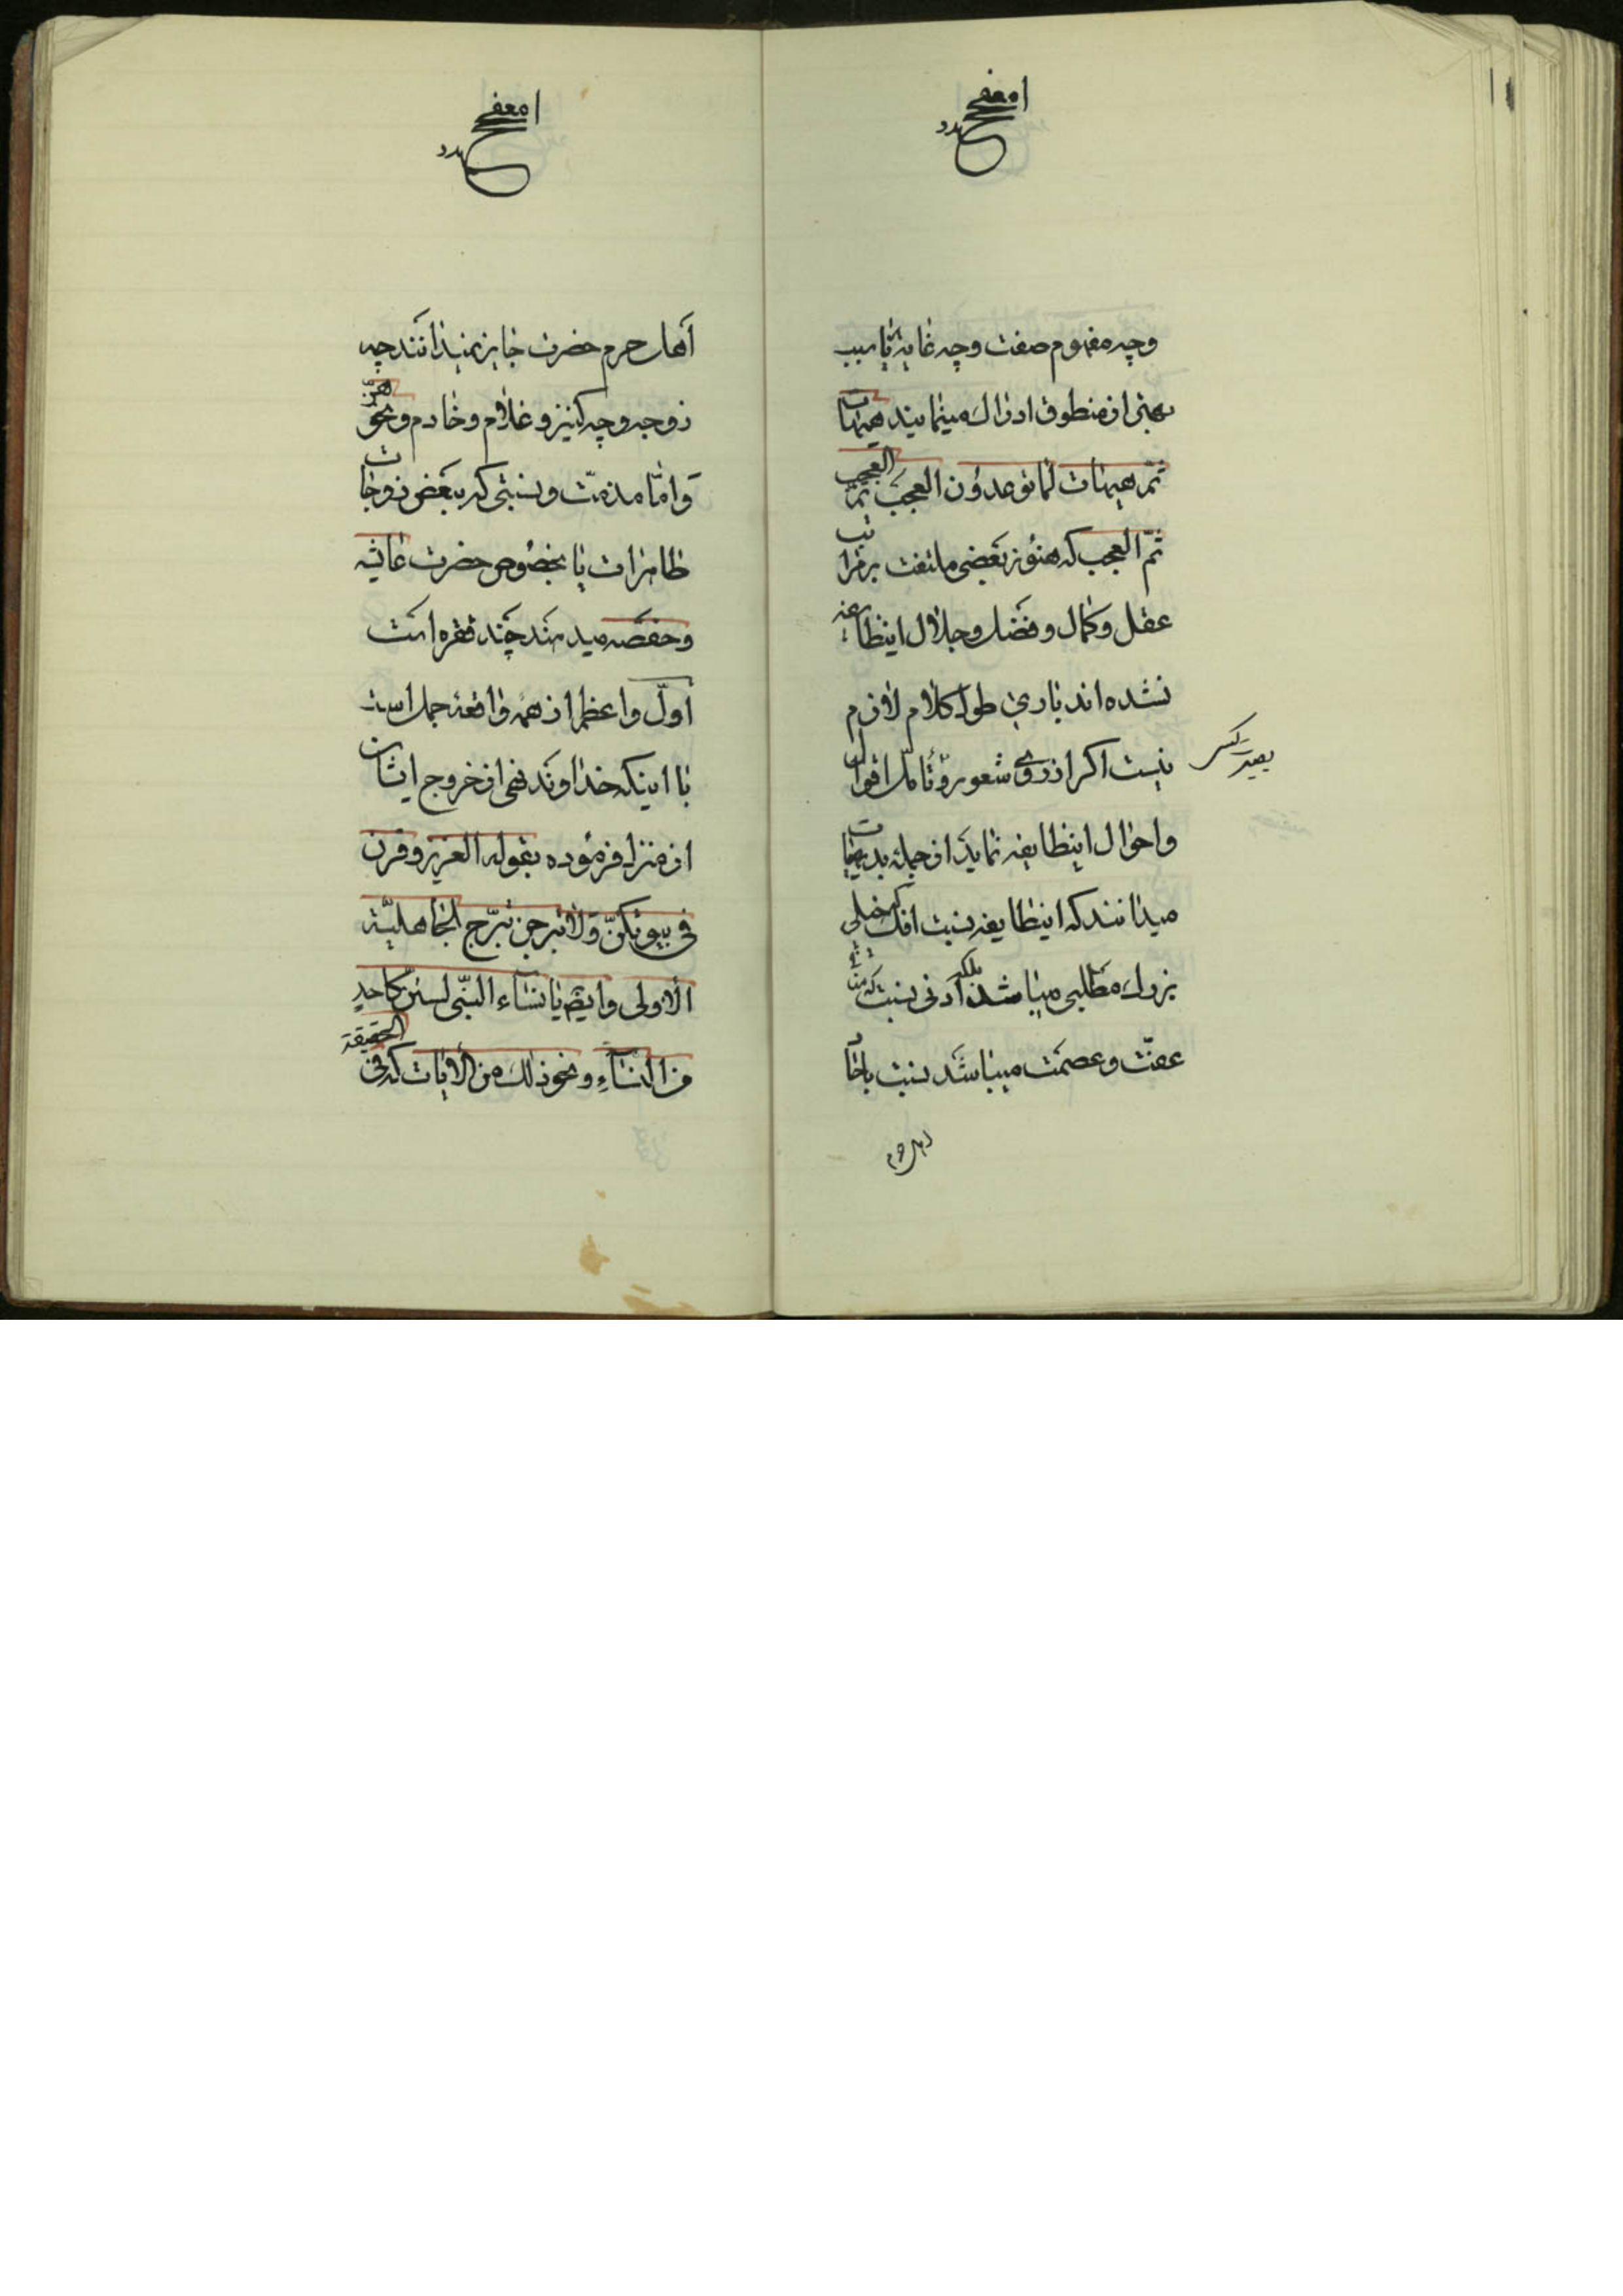 وچه مفهوم صفت وچه غایة یا سبب
بهتر از منطوق ادراک مینمایند هیهات
ثمّ هیهات لما توعدون العجب ثمّ العجب
ثمّ العجب که هنوز بعضی ملتفت برمراتب
عقل وکمال وفضل وجلال اینطایفه
نشده‌اند باری طول کلام لازم
نیست اکر از روی شعور وتأمل اقوال
بصیر کسی
واحوال اینطایفه نماید از جمله بدیهیات
میدانند که اینطایفه نسبت افک که خیلی
بزرك مطلبی میباشد بلکه ادنی نسبت که
عفّت وعصمت میباشد نسبت باحاد
اهل حرم
اهل حرم حضرت جایز نمیدانند چه
زوجه وچه کنیز وغلام وخادم ونحوهنّ
وامّا مذمّت ونسبتی که ببعض زوجات
طاهرات بالخصوص حضرت عایشه
وحفصه میدهند چند فقره است
اوّل واعظم از همه واقعه جمل است
با اینکه خداوند نهی از خروج ایشان
از منزل فرموده بقوله العزیز وقرن
فی بیوتکنّ ولا تبرجن تبرّج الجاهلیّة
الاولی وایضا یا نساء النبّی لستنّ کاحد
من النساء ونحو ذلك من الایات که فی الحقیقة